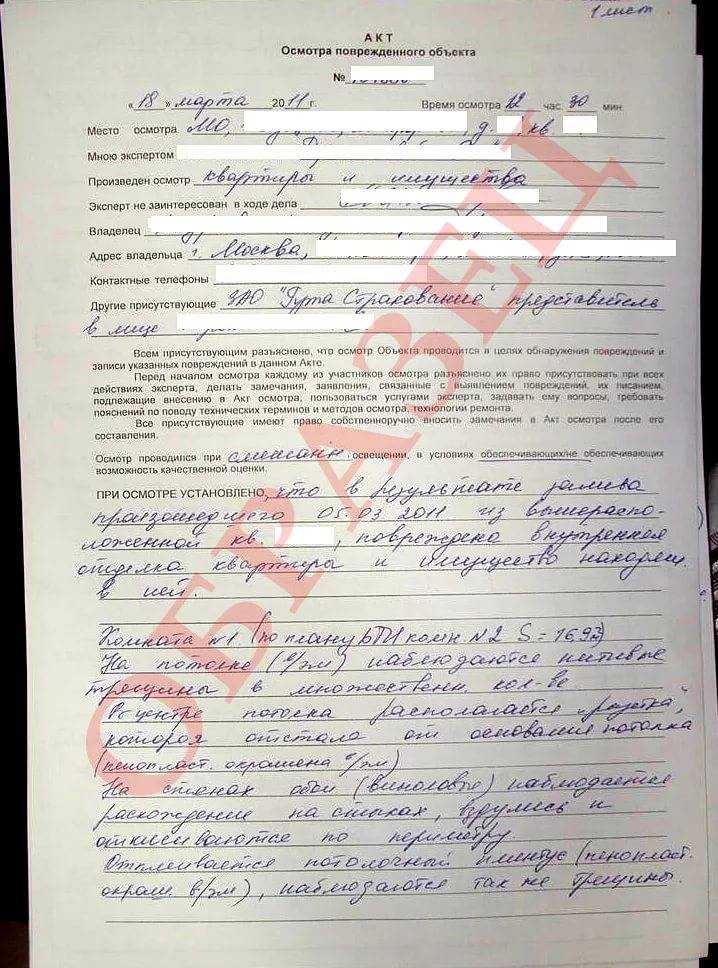 1 лист
АКТ
Осмотра поврежденного объекта
№
« 18 » марта 2011 г. Время осмотра 12 час. 30 мин
Место осмотра МО, д. кв.
Мною экспертом
Произведен осмотр квартиры и имущества
Эксперт не заинтересован в ходе дела
Владелец
Адрес владельца г. Москва,
Контактные телефоны
Другие присутствующие ЗАО "Гута Страхование" представитель
в лице
Всем присутствующим разъяснено, что осмотр Объекта проводится в целях обнаружения повреждений и
записи указанных повреждений в данном Акте.
Перед началом осмотра каждому из участников осмотра разъяснено их право присутствовать при всех
действиях эксперта, делать замечания, заявления, связанные с выявлением повреждений, их писанием,
подлежащие внесению в Акт осмотра, пользоваться услугами эксперта, задавать ему вопросы, требовать
пояснений по поводу технических терминов и методов осмотра, технологии ремонта.
Все присутствующие имеют право собственноручно вносить замечания в Акт осмотра после его
составления.
Осмотр проводился при смешанн освещении, в условиях обеспечивающих/не обеспечивающих
возможность качественной оценки.
ПРИ ОСМОТРЕ УСТАНОВЛЕНО, что в результате залива
произошедшего 05.03 2011 из вышераспо-
ложенной кв. , повреждена внутренняя
отделка квартиры и имущество находящ.
в ней.
Комната №1. (по плану БТИ комн. №2 S = 16.9
На потолке (в/эм) наблюдаются нитевые
трещины в множественн. кол-ве
В центре потолка располагается "розетка",
которая отстала от основания потолка
(пенопласт. окрашена в/эм)
На стенах обои (виниловые) наблюдается
расхождение на стыках, вздулись и
отклеиваются по периметру.
Отклеивается потолочный плинтус (пенопласт.
окраш. в/эм), наблюдаются так же трещины.
ОБРАЗЕЦ